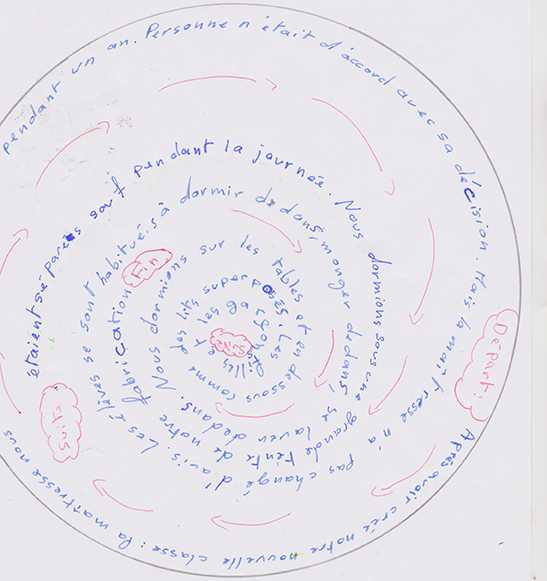 Départ:
Après avoir créé notre nouvelle classe: la maîtresse nous
pendant un an. Personne n'était d'accord avec sa décision. Mais la maîtresse n'a pas changé d'avis. Les élèves se sont habitués à dormir dedans, manger dedans, se laver dedans. Nous dormions sur les tables et en dessous comme des lits superposés. Les filles et les garçons
étaient séparés sauf pendant la journée. Nous dormions sous une grande tente de notre fabrication
Fin